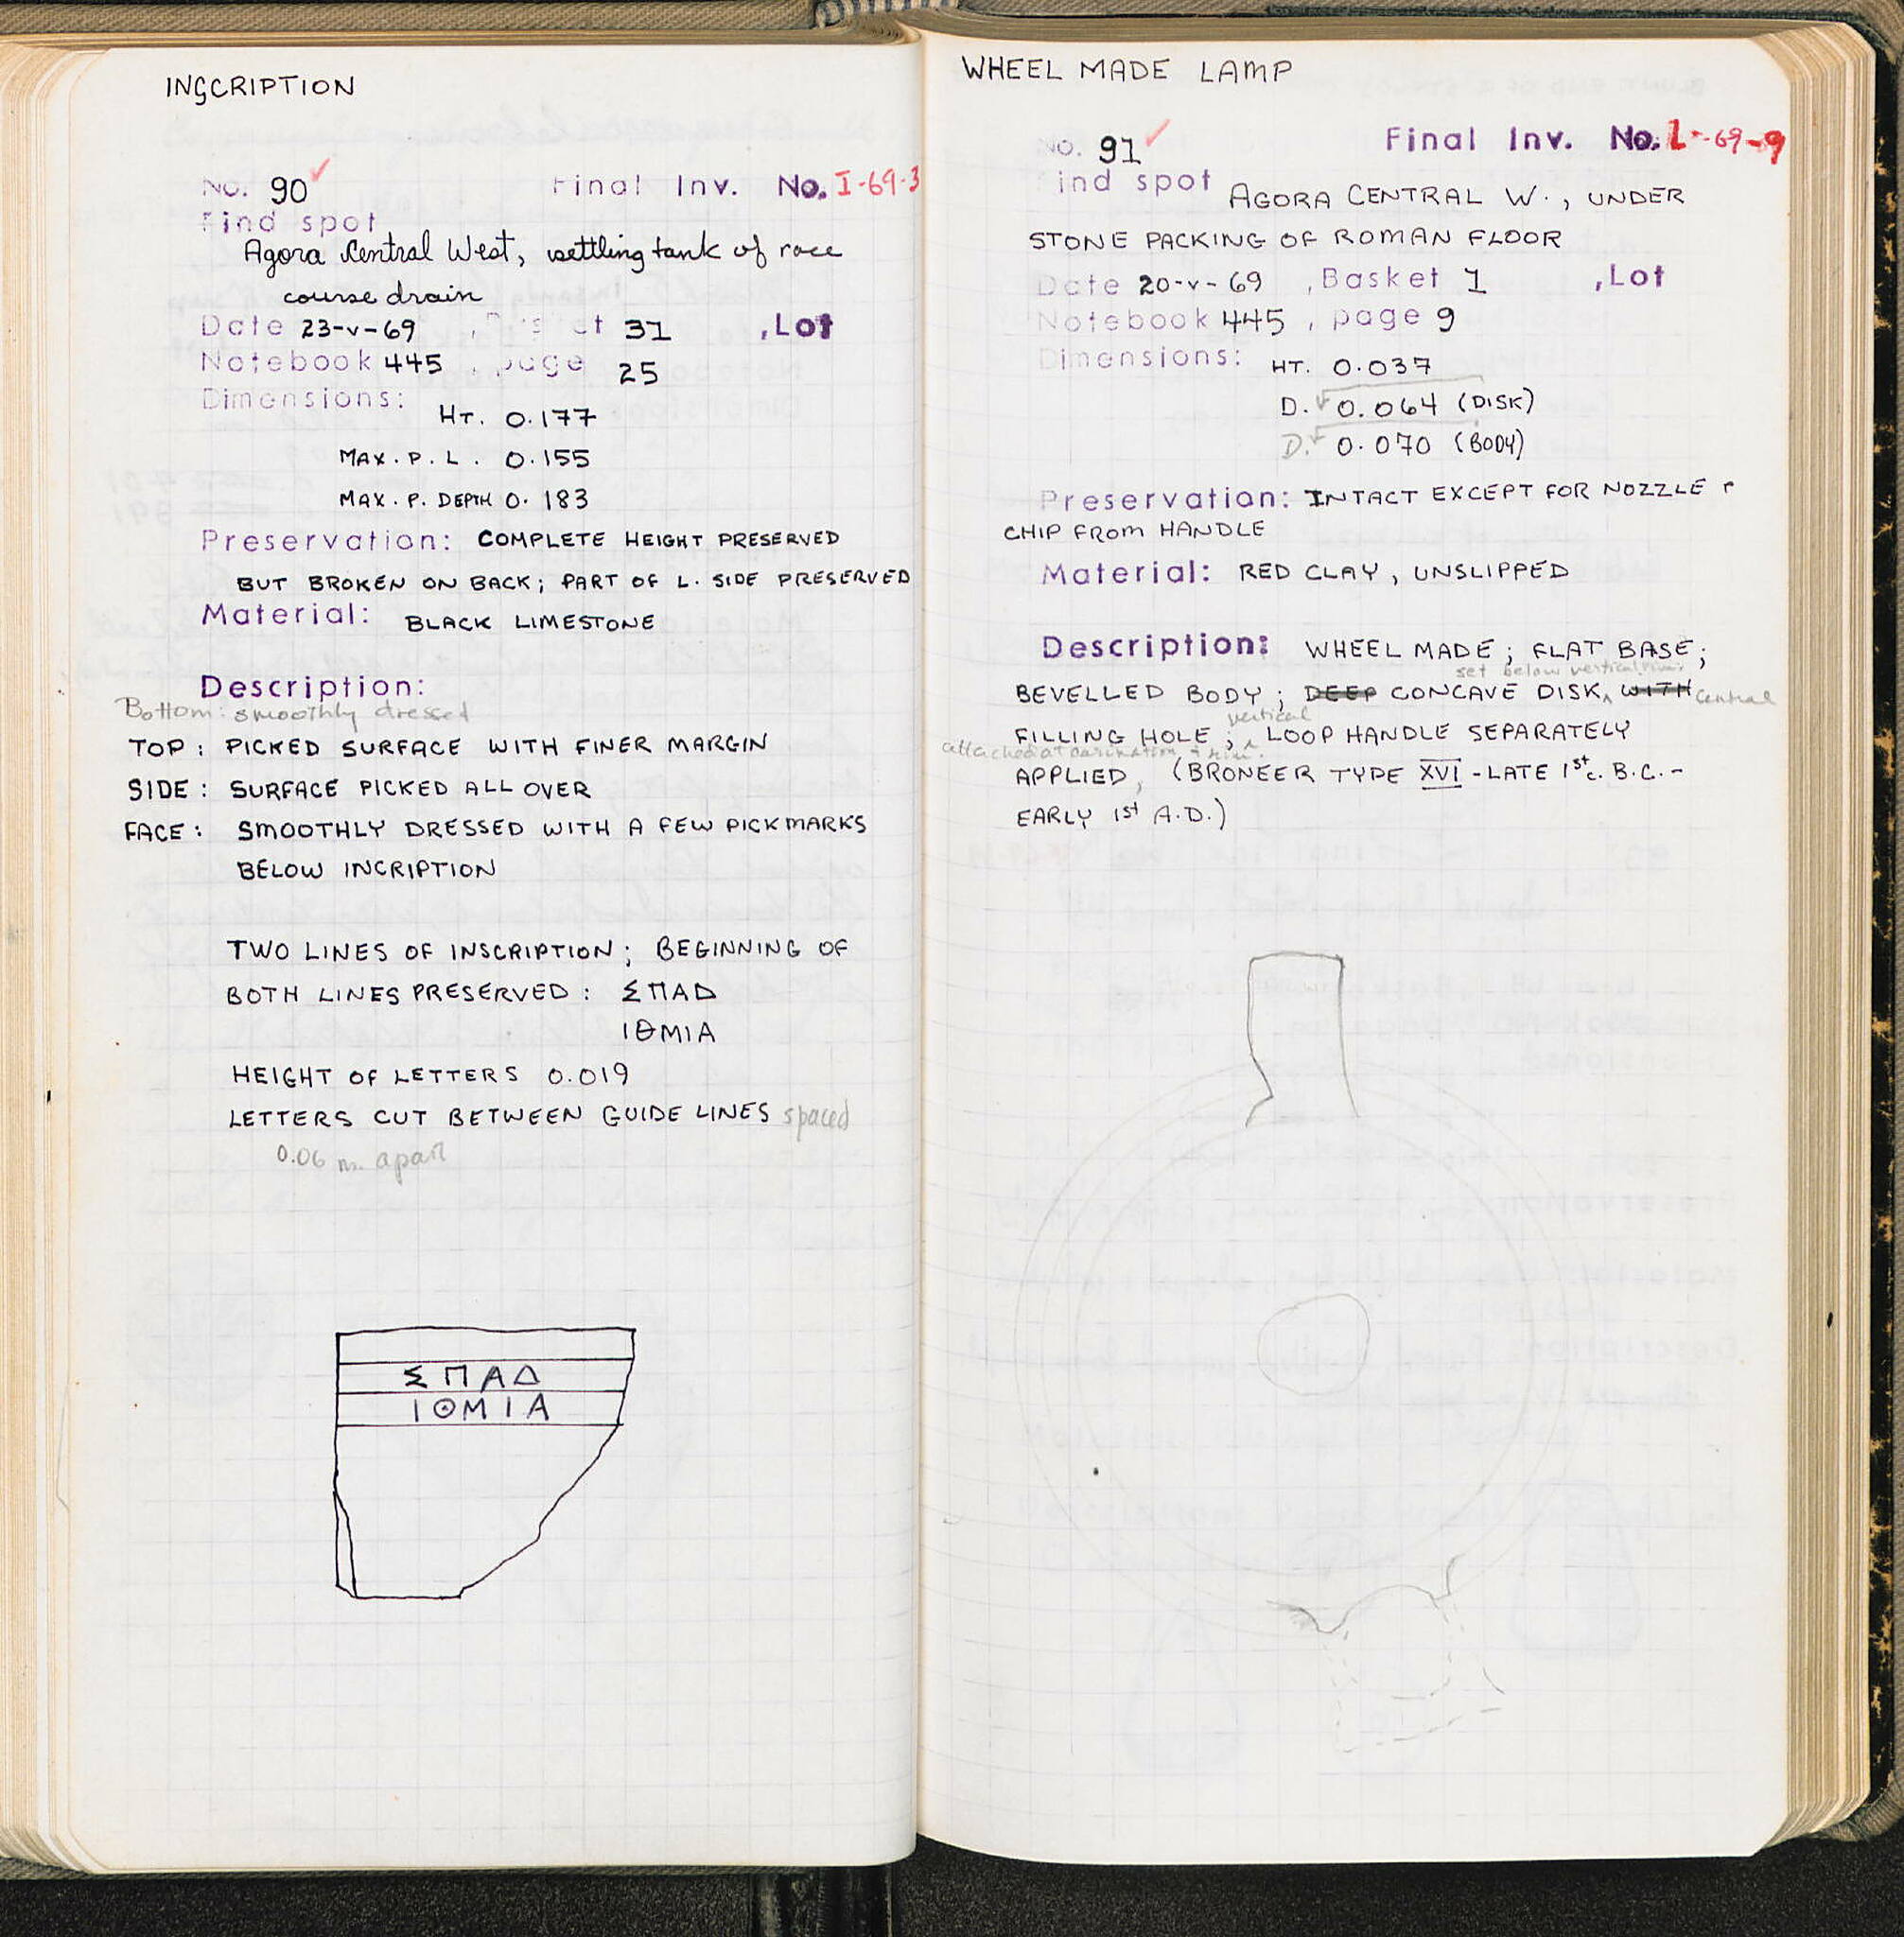 INSCRIPTION
No. 90 Final Inv. No. I-69-3
Find spot
Agora Central West, settling tank of race
course drain
Date 23-V-69 , Basket 31 , Lot
Notebook 445 , page 25
Dimensions: HT. 0.177
MAX. P. L. 0.155
MAX. P. DEPTH 0.183
Preservation: COMPLETE HEIGHT PRESERVED
BUT BROKEN ON BACK; PART OF L. SIDE PRESERVED
Material: BLACK LIMESTONE
Description:
Bottom: smoothly dressed
TOP: PICKED SURFACE WITH FINER MARGIN
SIDE: SURFACE PICKED ALL OVER
FACE: SMOOTHLY DRESSED WITH A FEW PICKMARKS
BELOW INCRIPTION
TWO LINES OF INSCRIPTION; BEGINNING OF
BOTH LINES PRESERVED: ΣΠΑΔ
ΙΘΜΙΑ
HEIGHT OF LETTERS 0.019
LETTERS CUT BETWEEN GUIDE LINES spaced
0.06 m. apart
ΣΠΑΔ
ΙΘΜΙΑ
WHEEL MADE LAMP
No. 91 Final Inv. No. L-69-9
Find spot AGORA CENTRAL W., UNDER
STONE PACKING OF ROMAN FLOOR
Date 20-V-69 , Basket 1 , Lot
Notebook 445 , page 9
Dimensions: HT. 0.037
D. 0.064 (DISK)
D. 0.070 (BODY)
Preservation: INTACT EXCEPT FOR NOZZLE
CHIP FROM HANDLE
Material: RED CLAY, UNSLIPPED
Description: WHEEL MADE; FLAT BASE;
set below vertical rim
BEVELLED BODY; DEEP CONCAVE DISK WITH central
vertical
FILLING HOLE; LOOP HANDLE SEPARATELY
attached at carination + rim.
APPLIED, (BRONEER TYPE XVI - LATE 1st c. B.C. -
EARLY 1st A.D.)